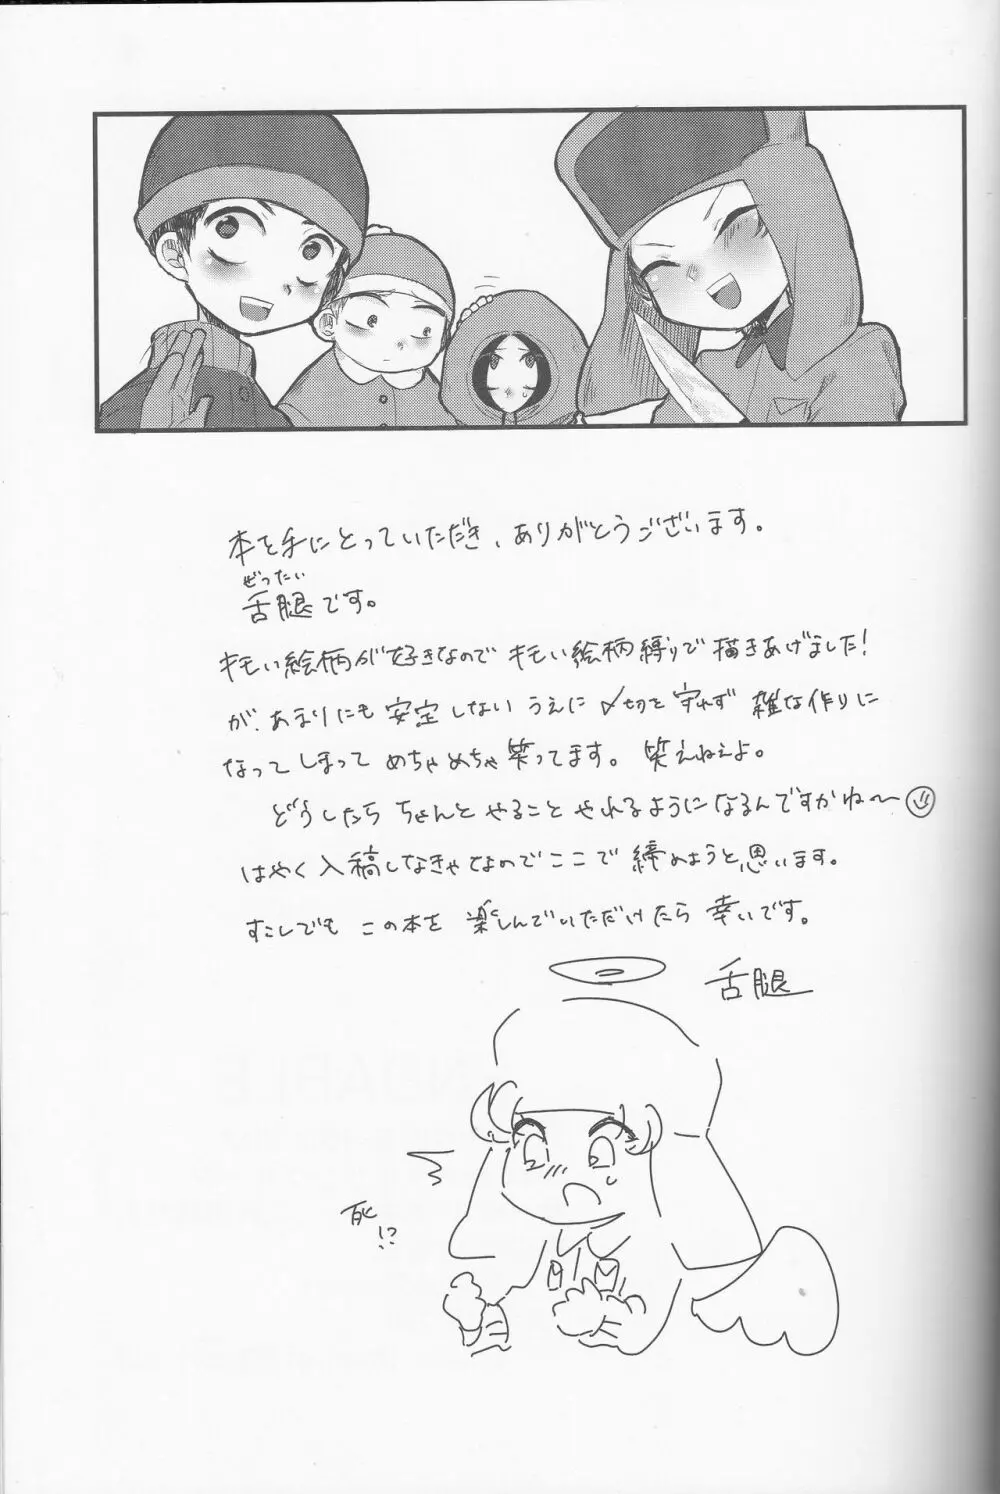 本を手にとっていただき、ありがとうございます。
ぜったい
舌腿です。
キモい絵柄が好きなのでキモい絵柄縛りで描きあげました!
が、あまりにも安定しないうえに〆切を守れず雑な作りに
なってしまってめちゃめちゃ笑ってます。笑えねぇよ。
どうしたらちゃんとやることやれるようになるんですかね〜
はやく入稿しなきゃなのでここで締めようと思います。
すこしでもこの本を楽しんでいただけたら幸いです。
舌腿
死!?